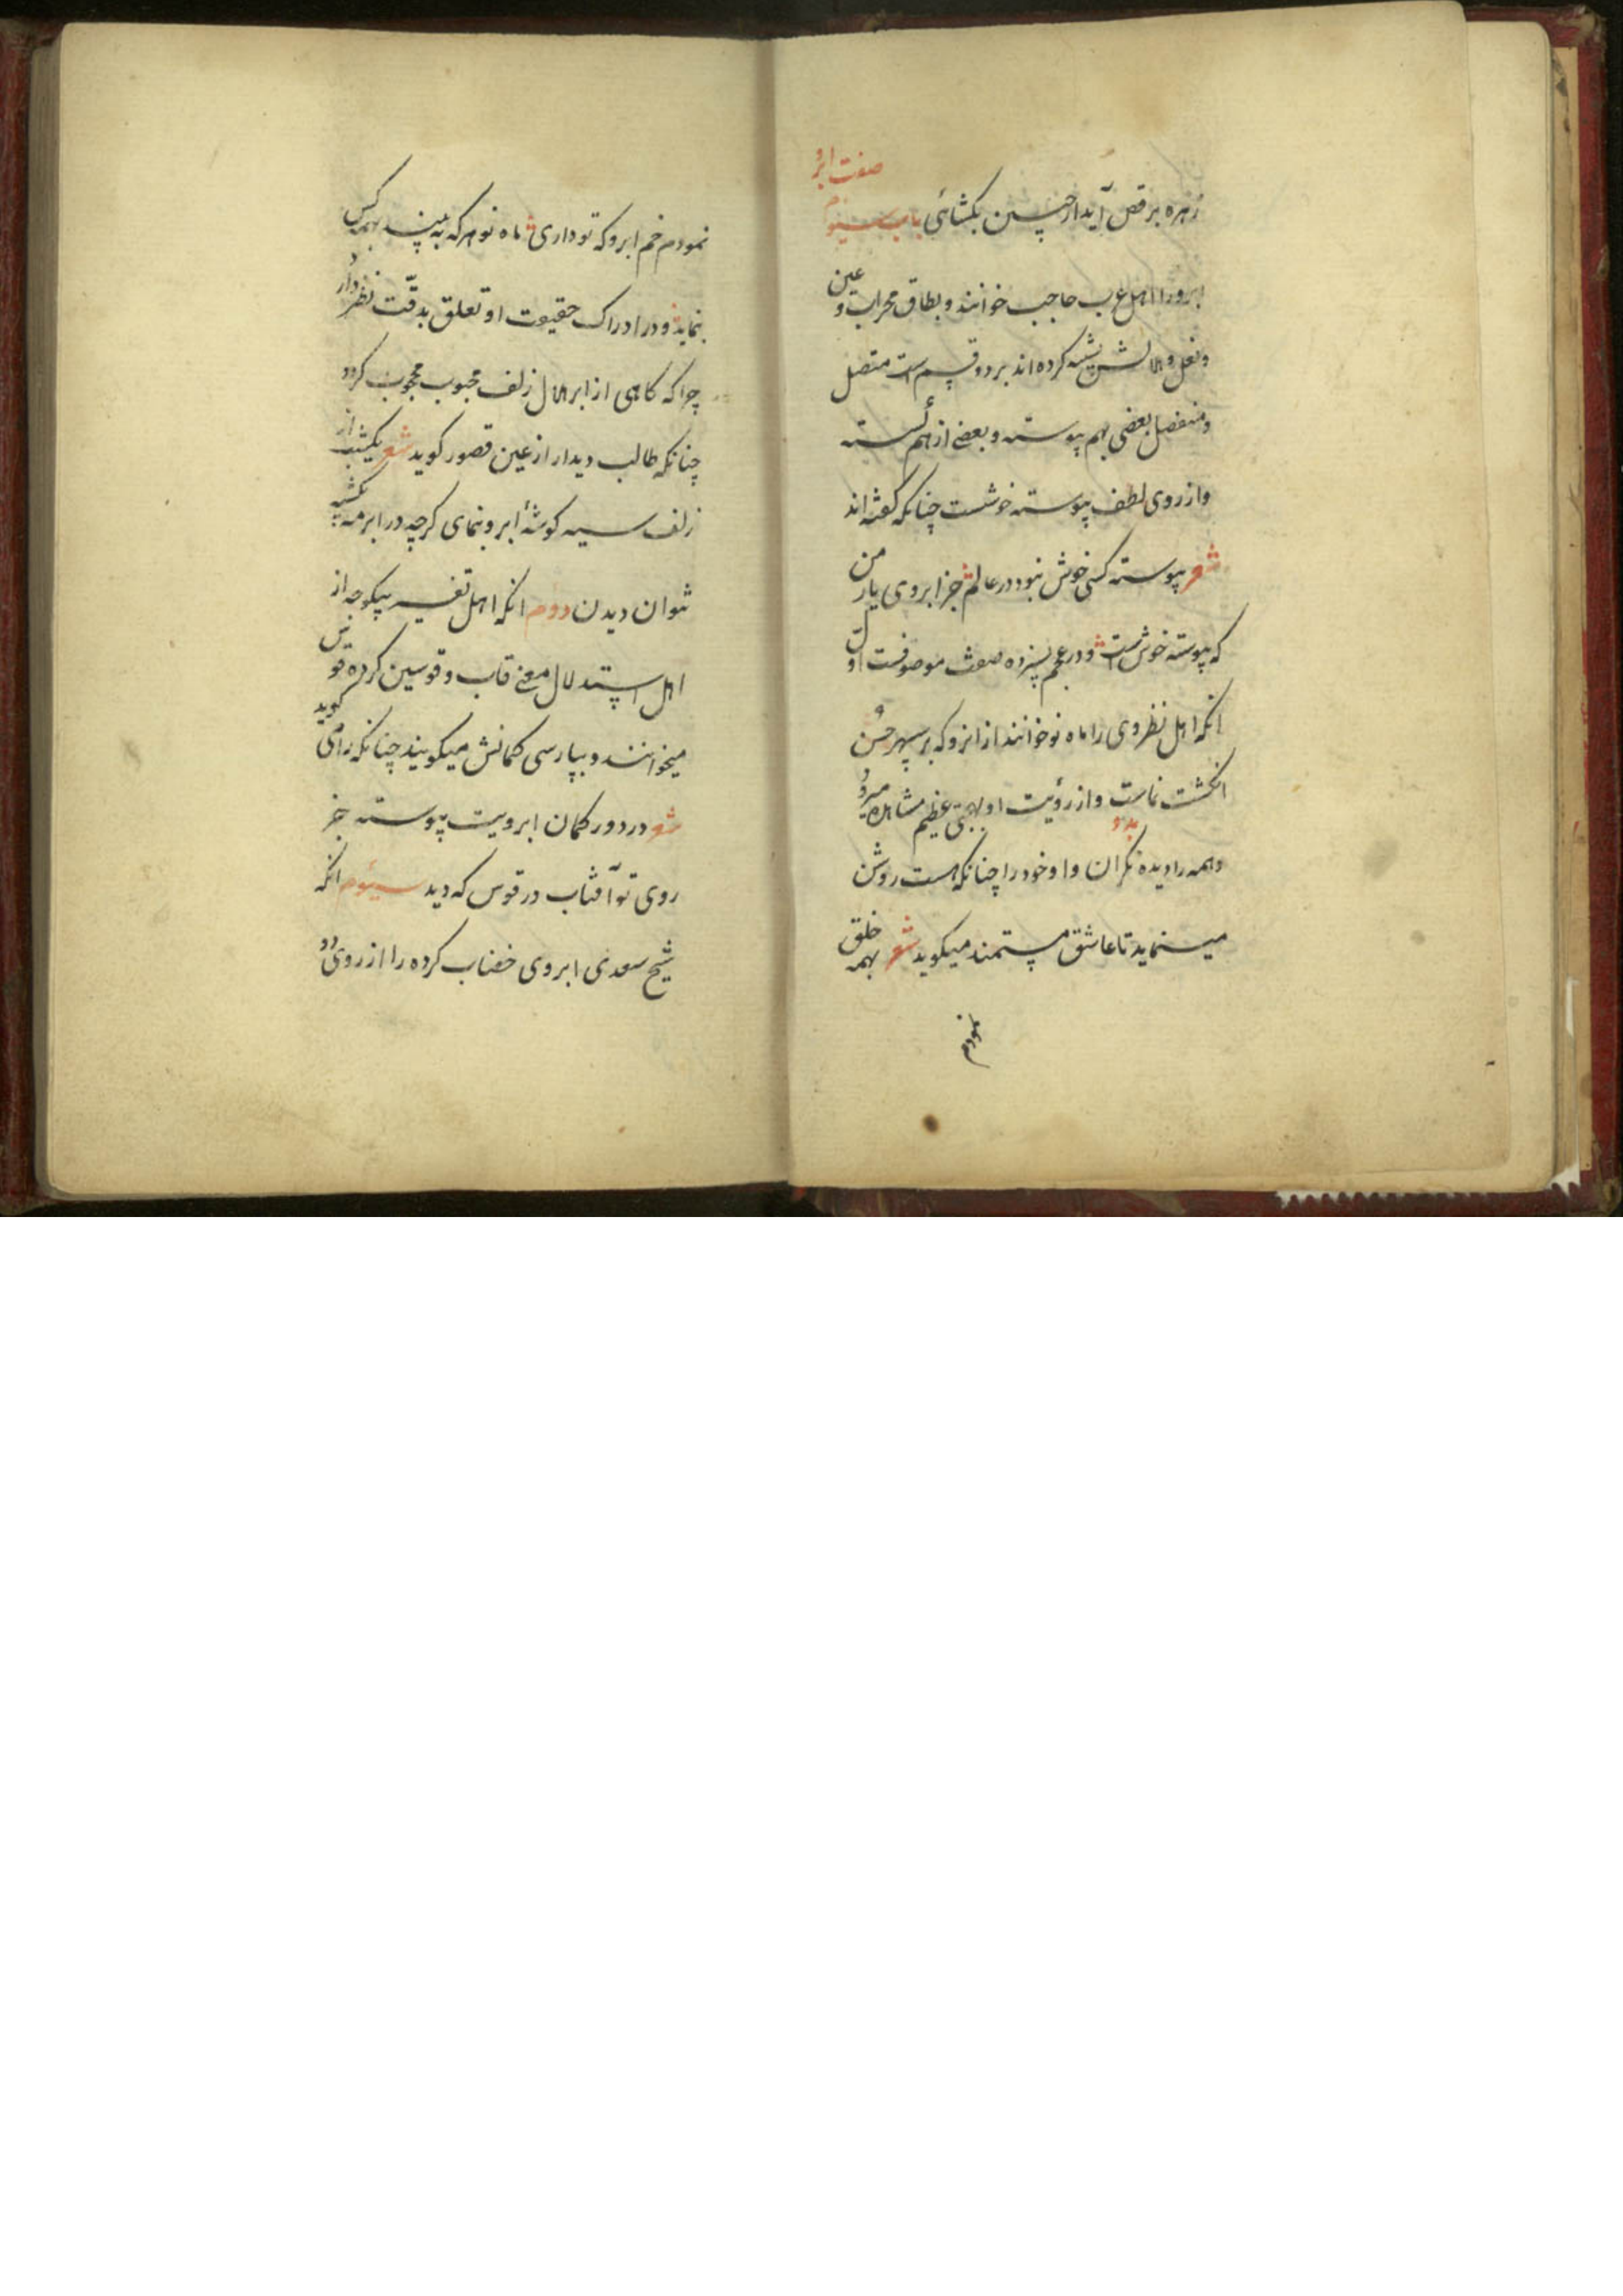 زهره برقص آید ار چین بکشائی باب سیوم
صفت ابرو
ابرو را اهل عرب حاجب خوانند و بطاق محراب و عین
و نعل و هلالش تشبیه کرده اند بر دو قسم است متصل
و منفصل بعضی بهم پیوسته و بعضی از هم گسسته
و از روی لطف پیوسته خوشست چنانکه گفته اند
شعر پیوسته کسی خوش نبود در عالم جز ابروی یار من
که پیوسته خوش است و در عجم بسیزده صفت موصوفست اول
انکه اهل نظر وی را ماه نو خوانند از انرو که بر سپهر حسن
انکشت نماست و از رؤیت او بهجتی عظیم مشاهده میرود
و همه را دیده نکران بدو و او خود را چنانکه هست روشن
مینماید تا عاشق مستمند میکوید شعر بهمه خلق
نمودم
نمودم خم ابرو که تو داری ماه نو هر که به بیند بهمه کس
بنماید و در ادراک حقیقت او تعلق بدقت نظر دارد
چرا که کاهی از ابر هلال زلف محبوب محجوب کردد
چنانکه طالب دیدار از عین قصور کوید شعر یکشب از
زلف سیه کوشهٔ ابرو بنمای کرچه در ابر مه یکشبه
نتوان دیدن دوم انکه اهل تفسیر بیکوجه از
اهل استدلال معنی قاب و قوسین کرده قوس
میخوانند و بپارسی کمانش میکویند چنانکه رامی کوید
شعر در دور کمان ابرویت پیوسته جز
روی تو آفتاب در قوس که دید سیوم انکه
شیخ سعدی ابروی خضاب کرده را از روی دو